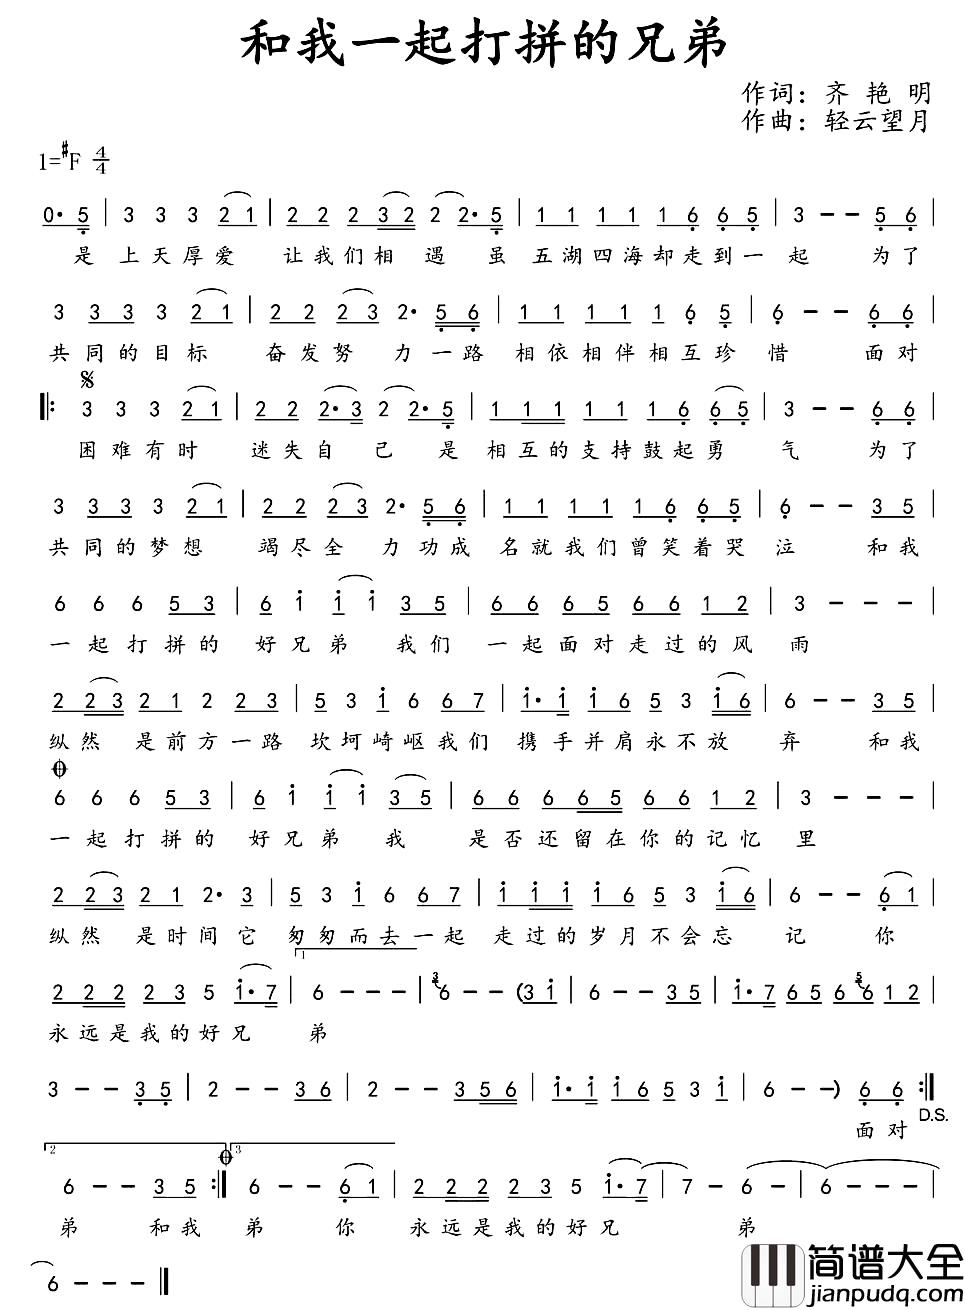 和我一起打拼的兄弟
作词：齐 艳 明
作曲：轻云望月
1=#F 4/4
0· 5 | 3 3 3 2 1 | 2 2 2 3 2 2 2· 5 | 1 1 1 1 1 6 6 5 | 3 – – 5 6 |
是 上天厚爱 让我们相 遇 虽 五湖四海却走到一 起 为了
3 3 3 3 2 1 | 2 2 2 3 2· 5 6 | 1 1 1 1 1 6 5 | 6 – – 6 6 |
共同的目标 奋发努 力一路 相依相伴相互珍 惜 面对
3 3 3 2 1 | 2 2 2· 3 2 2· 5 | 1 1 1 1 1 1 6 6 5 | 3 – – 6 6 |
困难有时 迷失自 己 是 相互的支持鼓起勇 气 为了
3 3 3 3 2 1 | 2 2 2 3 2· 5 6 | 1 1 1 1 1 6 6 5 | 6 – – 3 5 |
共同的梦想 竭尽全 力功成 名就我们曾笑着哭 泣 和我
6 6 6 5 3 | 6 1 1 1 3 5 | 6 6 6 5 6 6 1 2 | 3 – – – |
一起打拼的 好兄弟 我们 一起面对走过的风 雨
2 2 3 2 1 2 2 3 | 5 3 1 6 6 7 | 1· 1 1 6 5 3 1 6 | 6 – – 3 5 |
纵然 是前方一路 坎坷崎岖我们 携手并肩永不放 弃 和我
6 6 6 5 3 | 6 1 1 1 3 5 | 6 6 6 6 5 6 6 1 2 | 3 – – – |
一起打拼的 好兄弟 我 是否还留在你的记忆 里
2 2 3 2 1 2· 3 | 5 3 1 6 6 7 | 1 1 1 1 6 5 3 1 6 | 6 – – 6 1 |
纵然 是时间它 匆匆而去一起 走过的岁月不会忘 记 你
1
2 2 2 2 3 5 1· 7 | 6 – – | 3 6 – – (3 1 | 6 – – 3 5 | 1· 7 6 5 6 5 6 1 2 |
永远是我的好兄 弟
3 – – 3 5 | 2 – – 3 6 | 2 – – 3 5 6 | 1· 1 1 6 5 3 | 6 – –) 6 6 :|
D.S.
面对
2 3
6 – – 3 5 :| 6 – – 6 1 | 2 2 2 2 3 5 1· 7 | 7 – 6 – | 6 – – – |
弟 和我 弟 你 永远是我的好兄 弟
6 – – – ‖
简谱大全
jianpudq.com